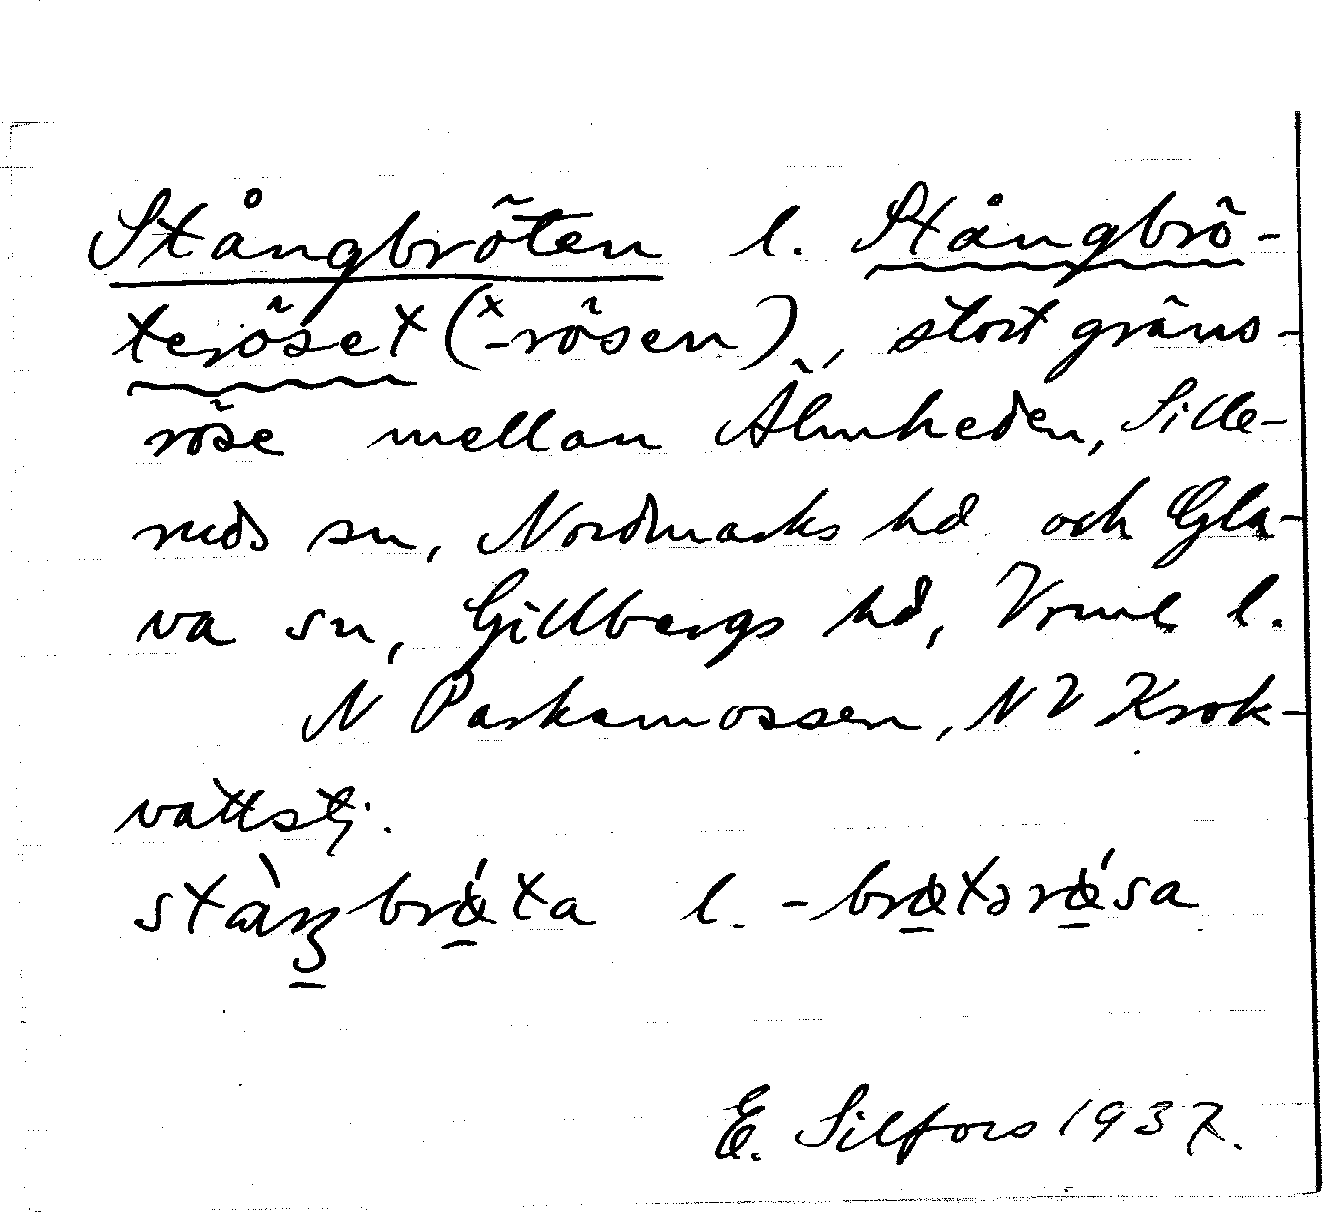 Stångbröten l. Stångbrö-
teröset (×-rösen), stort gräns-
röse mellan Älmheden, Sille-
ruds sn, Nordmarks hd och Gla-
va sn, Gillbergs hd, Vrml l.
N Parkamossen, NV Krok-
vattstj.
stàŋbrǿta l. -brøtərǿsa
E. Silfors 1937.